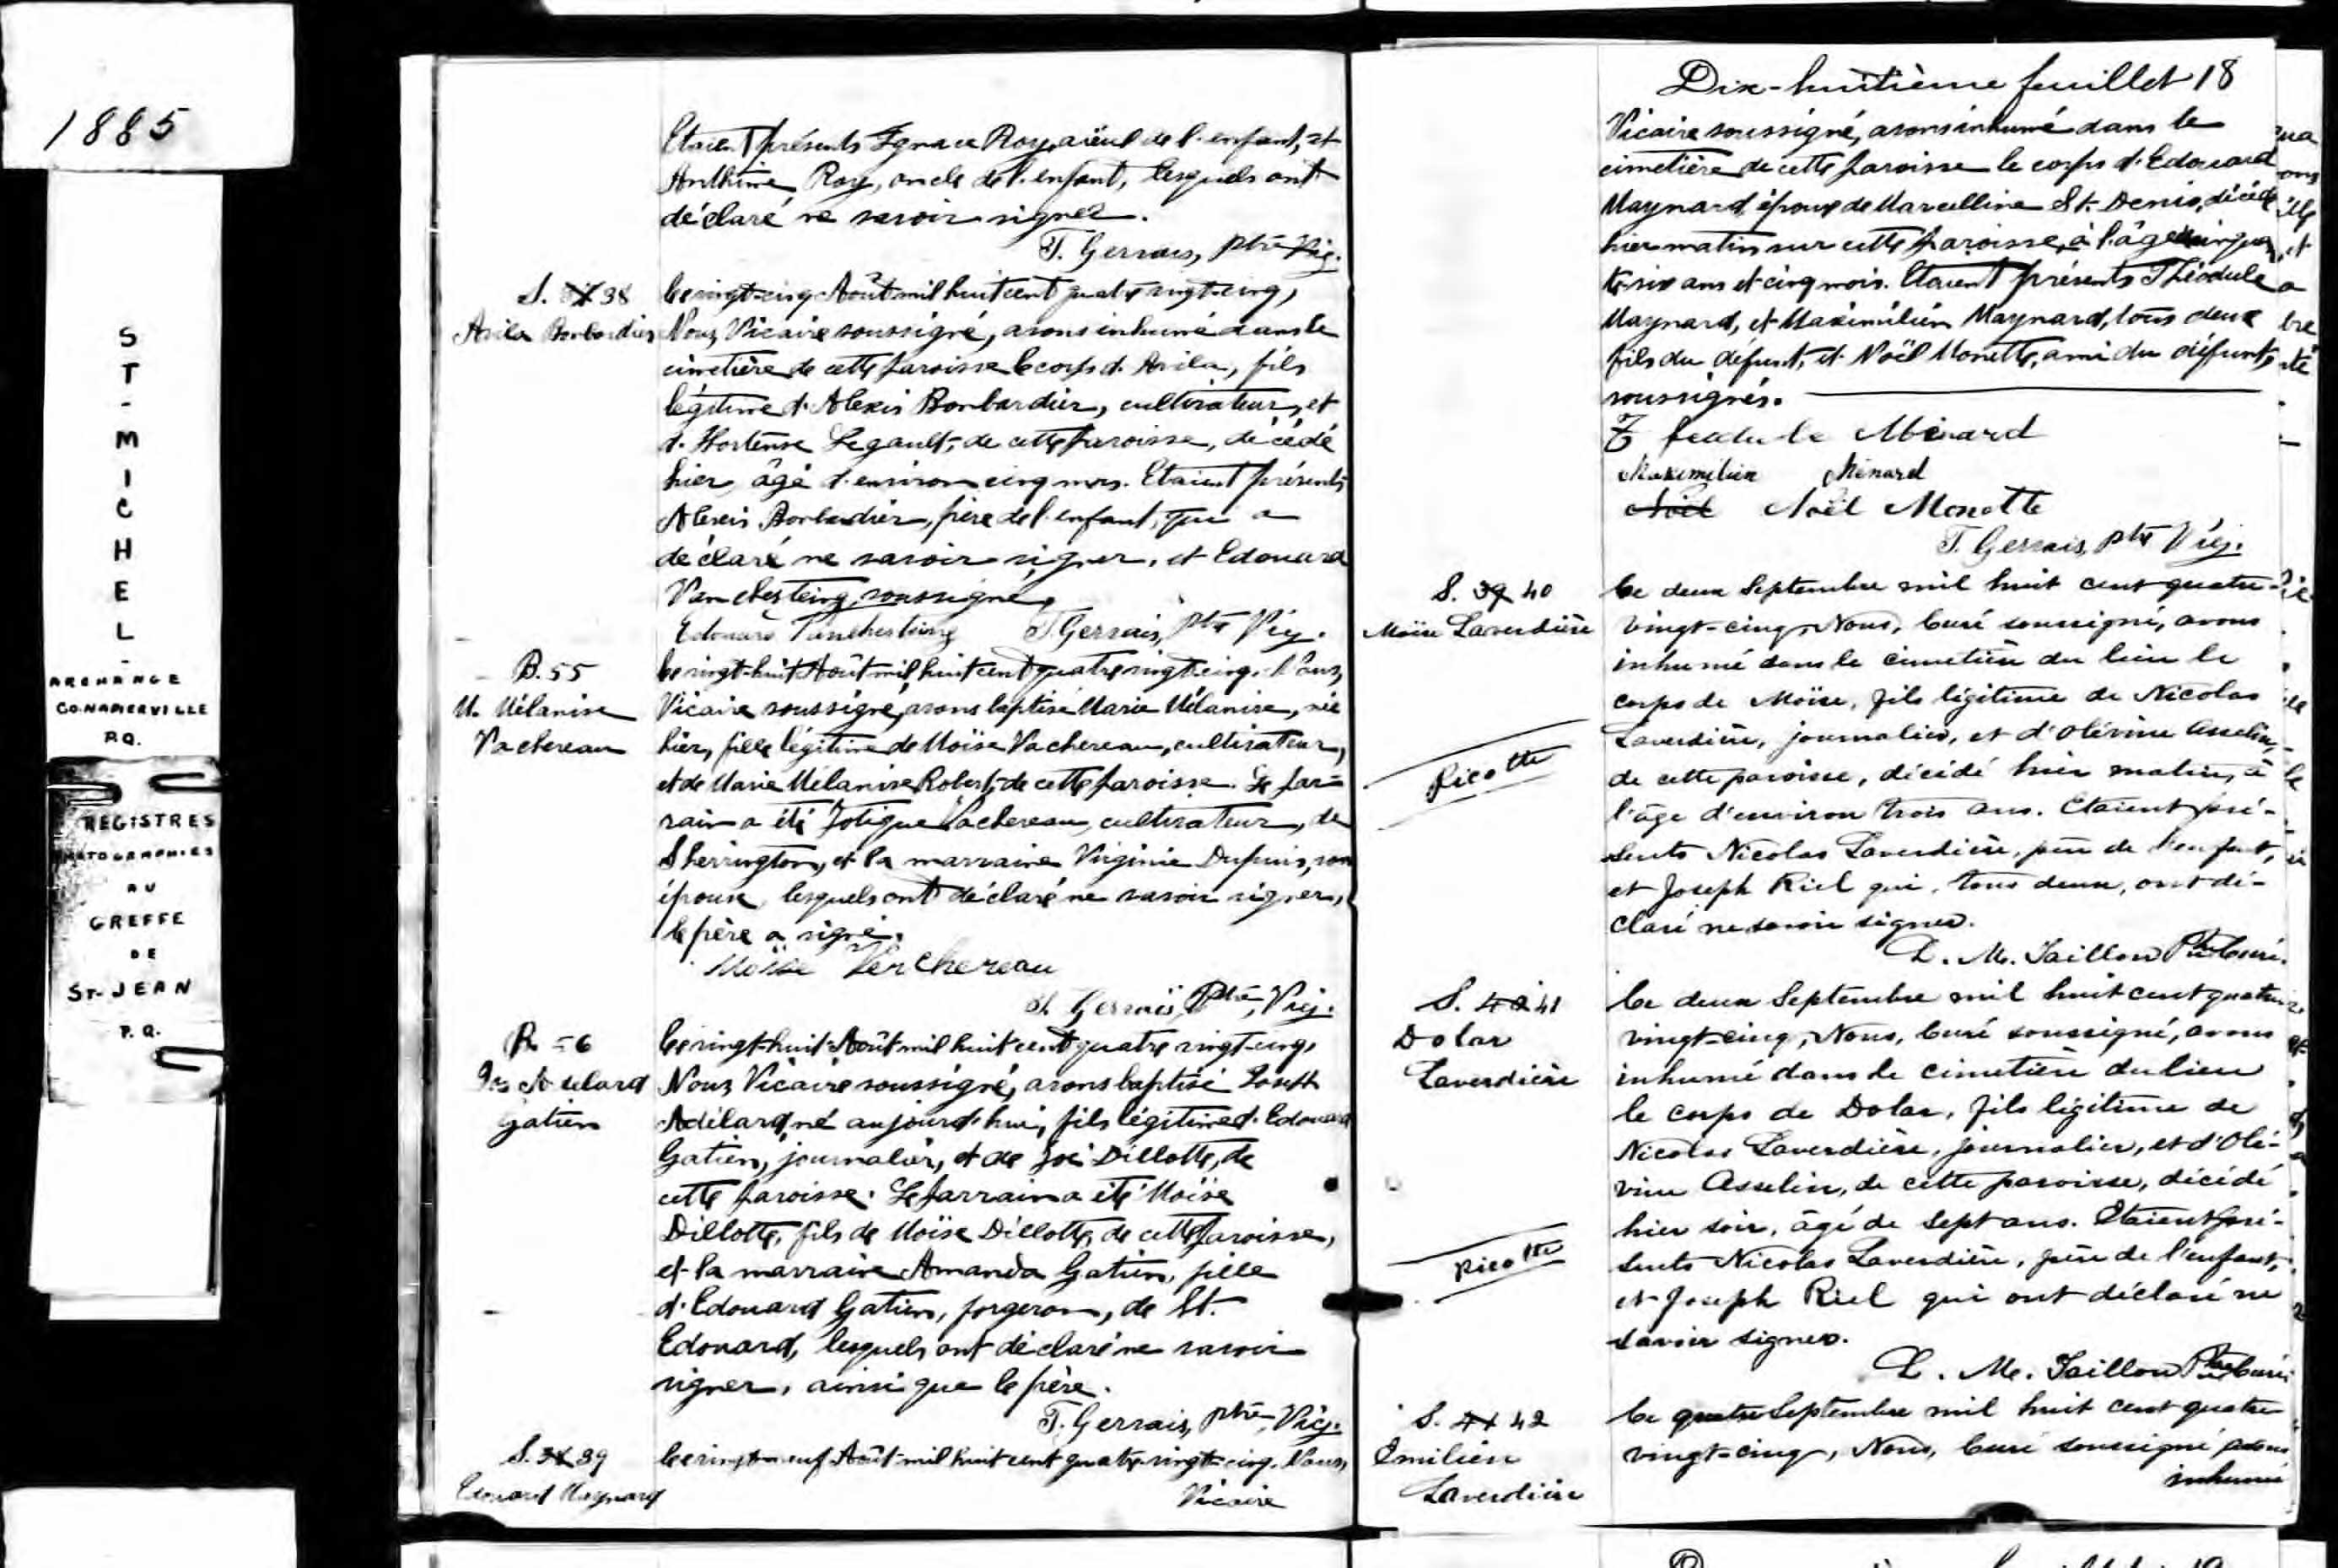 1885
ST-MICHEL-
ARCHANGE
CO. NAPIERVILLE
P.Q.
REGISTRES
PHOTOGRAPHIES
AU
GREFFE
DE
ST-JEAN
P.Q.
Etaient présents Ignace Roy, aïeul de l'enfant, et
Anthime Roy, oncle de l'enfant, lesquels ont
déclaré ne savoir signer.
T. Gervais, Ptre Vic.
S. 38
Avila Bombardier
Le vingt-cinq Août mil huit cent quatre vingt-cinq,
Nous, Vicaire soussigné, avons inhumé dans le
cimetière de cette paroisse le corps d'Avila, fils
légitime d'Alexis Bombardier, cultivateur, et
d'Hortense Legault, de cette paroisse, décédé
hier, âgé d'environ cinq mois. Etaient présents
Alexis Bombardier, père de l'enfant, qui a
déclaré ne savoir signer, et Edouard
Vanchesteing, soussigné.
Edouard Vanchesteing T. Gervais, Ptre Vic.
B. 55
M. Mélanise
Vachereau
Le vingt-huit Août mil huit cent quatre vingt-cinq, Nous,
Vicaire soussigné, avons baptisé Marie Mélanise, née
hier, fille légitime de Moïse Vachereau, cultivateur,
et de Marie Mélanise Robert, de cette paroisse. Le par-
rain a été Zotique Vachereau, cultivateur, de
Sherrington, et la marraine Virginie Dupuis, son
épouse, lesquels ont déclaré ne savoir signer,
le père a signé.
Moïse Verchereau
T. Gervais, Ptre, Vic.
B. 56
Jos Adelard
Gatien
Le vingt-huit Août mil huit cent quatre vingt-cinq,
Nous, Vicaire soussigné, avons baptisé Joseph
Adélard, né aujourd'hui, fils légitime d'Edouard
Gatien, journalier, et de Zoé Dillotte, de
cette paroisse. Le parrain a été Moïse
Dillotte, fils de Moïse Dillotte, de cette paroisse,
et la marraine Amanda Gatien, fille
d'Edouard Gatien, forgeron, de St.
Edouard, lesquels ont déclaré ne savoir
signer, ainsi que le père.
T. Gervais, Ptre, Vic.
S. 39
Edouard Maynard
Le vingt-neuf Août mil huit cent quatre-vingt-cinq, Nous,
Vicaire
Dix-huitième feuillet 18
Vicaire soussigné, avons inhumé dans le
cimetière de cette paroisse le corps d'Edouard
Maynard, époux de Marcelline St. Denis, décédé
hier matin sur cette paroisse, à l'âge cinquan
te-six ans et cinq mois. Etaient présents Théodule
Maynard, et Maximilien Maynard, tous deux
fils du défunt, et Noël Monette, ami du défunt,
soussignés.
Théodule Ménard
Maximilien Ménard
Noël Noël Monette
T. Gervais, Ptre Vic.
S. 39 40
Moïse Laverdière
Picotte
Le deux Septembre mil huit cent quatre-
vingt-cinq, Nous, Curé soussigné, avons
inhumé dans le cimetière du lieu le
corps de Moïse, fils légitime de Nicolas
Laverdière, journalier, et d'Olévine Asselin,
de cette paroisse, décédé hier matin, à
l'âge d'environ trois ans. Etaient pré-
sents Nicolas Laverdière, père de l'enfant,
et Joseph Riel qui, tous deux, ont dé-
claré ne savoir signer.
L. M. Taillon Ptre Curé.
S. 40 41
Dolar
Laverdière
Picotte
Le deux Septembre mil huit cent quatre
vingt-cinq, Nous, Curé soussigné, avons
inhumé dans le cimetière du lieu
le corps de Dolar, fils légitime de
Nicolas Laverdière, journalier, et d'Olé-
vine Asselin, de cette paroisse, décédé
hier soir, âgé de sept ans. Etaient pré-
sents Nicolas Laverdière, père de l'enfant,
et Joseph Riel qui ont déclaré ne
savoir signer.
L. M. Taillon Ptre Curé
S. 41 42
Emilien
Laverdière
Le quatre Septembre mil huit cent quatre
vingt-cinq, Nous, Curé soussigné avons
inhumé